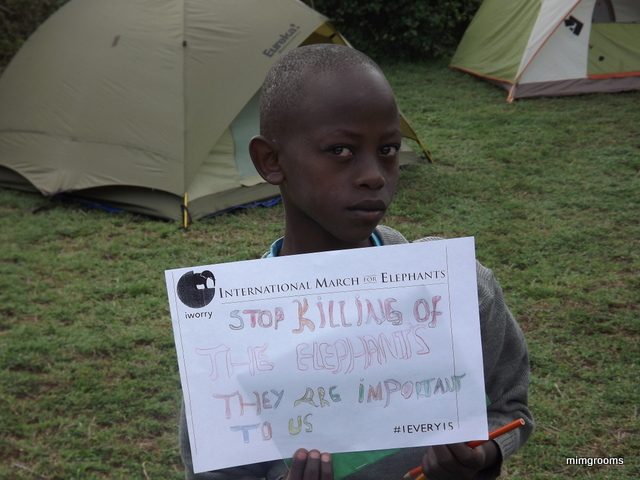 Eureka!
INTERNATIONAL MARCH FOR ELEPHANTS
iworry
STOP KILLING OF
THE ELEPHANTS
THEY ARE IMPORTANT
TO US
#1EVERY15
mimgrooms